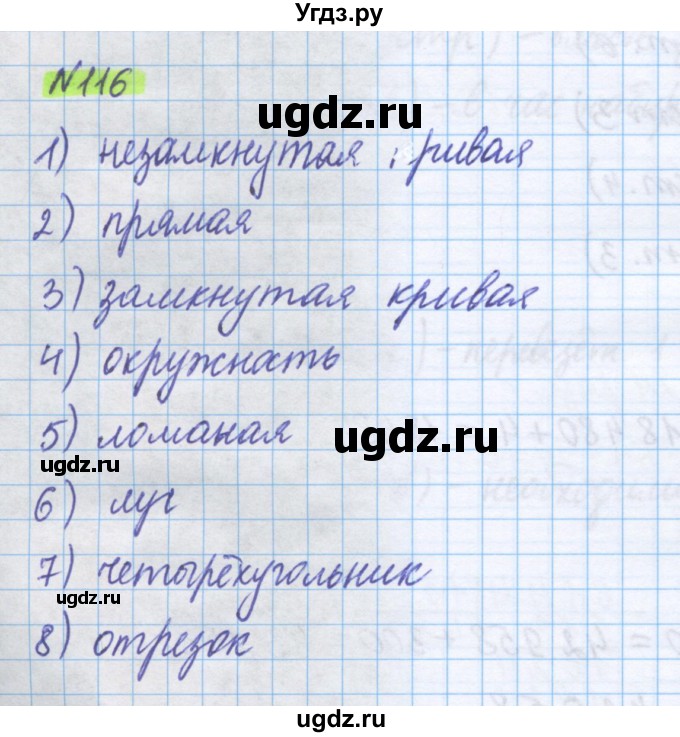 Угдз.ру
N116
ugdz.ru
1) незамкнутая кривая
2) прямая
ugdz.ru
3) замкнутая кривая
4) окружность
5) ломаная
ugdz.ru
ugdz.ru
6) луч
ugdz.ru
7) четырёхугольник
ugdz.ru
8) отрезок
ugdz.ru